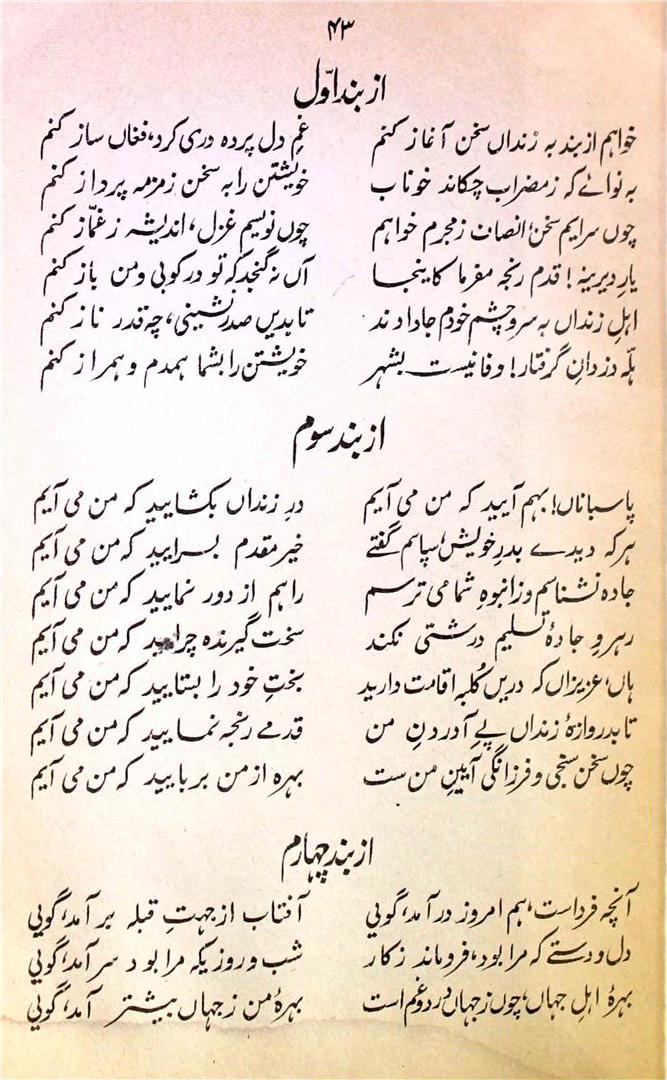 ۴۳
از بند اوّل
خواہم از بند بہ زنداں سخن آغاز کنم غمِ دل پردہ دری کرد، فغاں ساز کنم
بہ نوائے کہ زمضراب چکاند خوناب خویشتن را بہ سخن زمزمہ پرداز کنم
چوں سرایم سخن، انصاف زمجرم خواہم چوں نویسم غزل، اندیشہ زغمّاز کنم
یارِ دیرینہ! قدم رنجہ مفرما کاینجا آں نہ گنجد کہ تو در کوبی و من باز کنم
اہلِ زنداں بہ سر و چشمِ خودم جا دادند تا بدیں صدر نشینی، چہ قدر ناز کنم
ہلہ دزدانِ گرفتار! وفا نیست بشہر خویشتن را بشما ہمدم و ہمراز کنم
از بند سوم
پاسباناں! بہم آیید کہ من می آیم درِ زنداں بکشایید کہ من می آیم
ہرکہ دیدے بدرِ خویش، سپاسم گفتے خیر مقدم بسرایید کہ من می آیم
جادہ نشناسم و زانبوہِ شما می ترسم راہم از دور نمایید کہ من می آیم
رہروِ جادۂ تسلیم درشتی نکند سخت گیرندہ چرایید کہ من می آیم
ہاں، عزیزاں کہ دریں کُلبہ اقامت دارید بختِ خود را بستایید کہ من می آیم
تا بدروازۂ زنداں پےِ آوردنِ من قدمے رنجہ نمایید کہ من می آیم
چوں سخن سنجی و فرزانگی آیینِ من ست بہرہ از من بربایید کہ من می آیم
از بند چہارم
آنچہ فرداست، ہم امروز در آمد، گویی آفتاب از جہتِ قبلہ بر آمد، گویی
دل و دستے کہ مرا بود، فروماند زکار شب و روزیکہ مرا بود سر آمد، گویی
بہرۂ اہلِ جہاں، چوں زجہاں درد و غم است بہرۂ من زجہاں بیشتر آمد، گویی